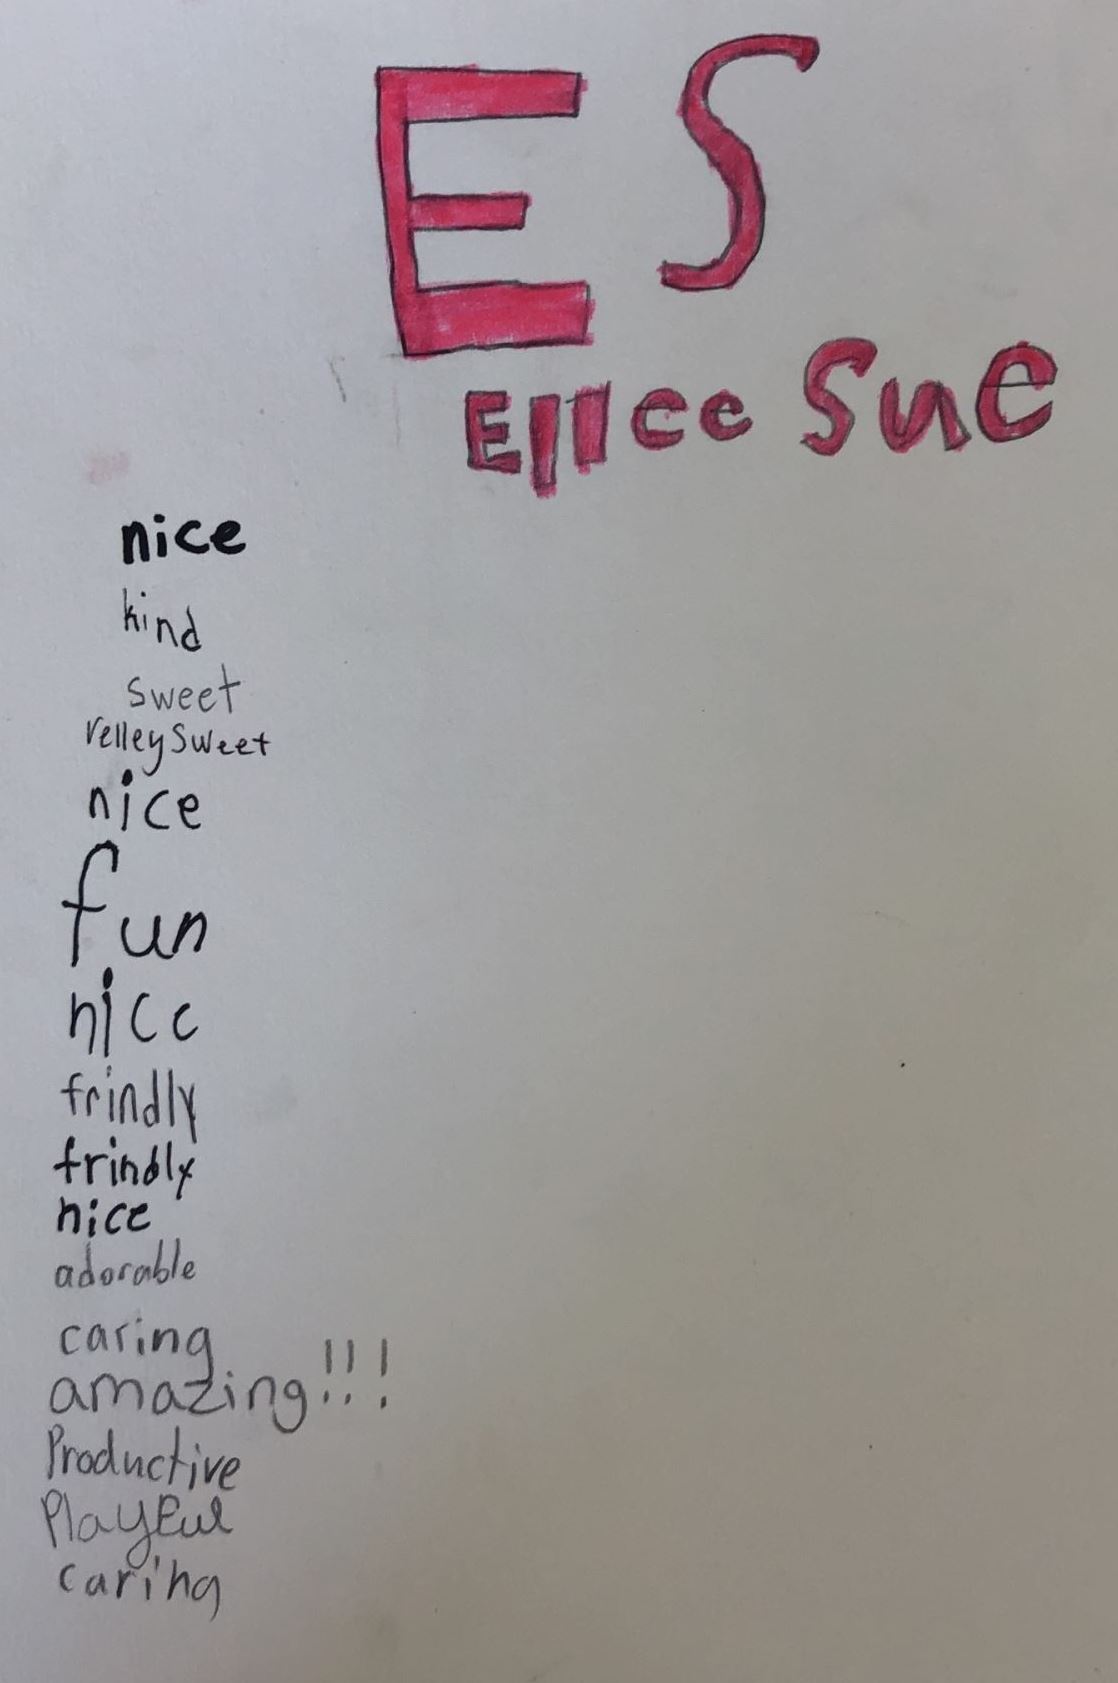 E S
Ellee Sue
nice
kind
sweet
relley sweet
nice
fun
nice
frindly
frindly
nice
adorable
caring
amazing!!!
Productive
Playful
caring